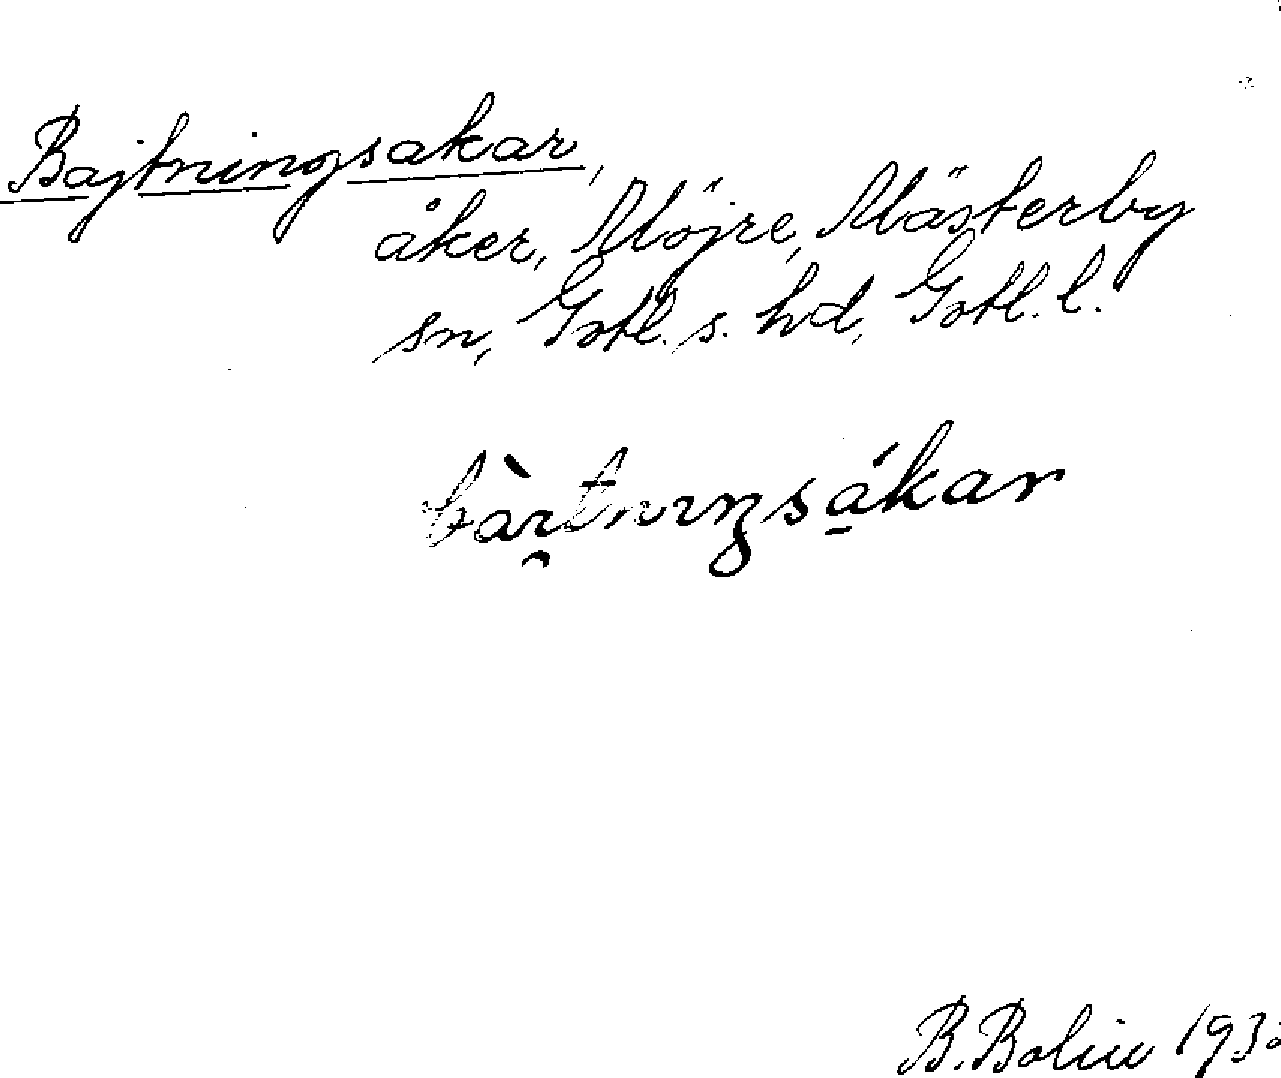 Bajtningsakar,
åker, Mojre, Mästerby
sn, Gotl. s. hd, Gotl. l.
bàı̯tnıŋsákar
B. Bolin